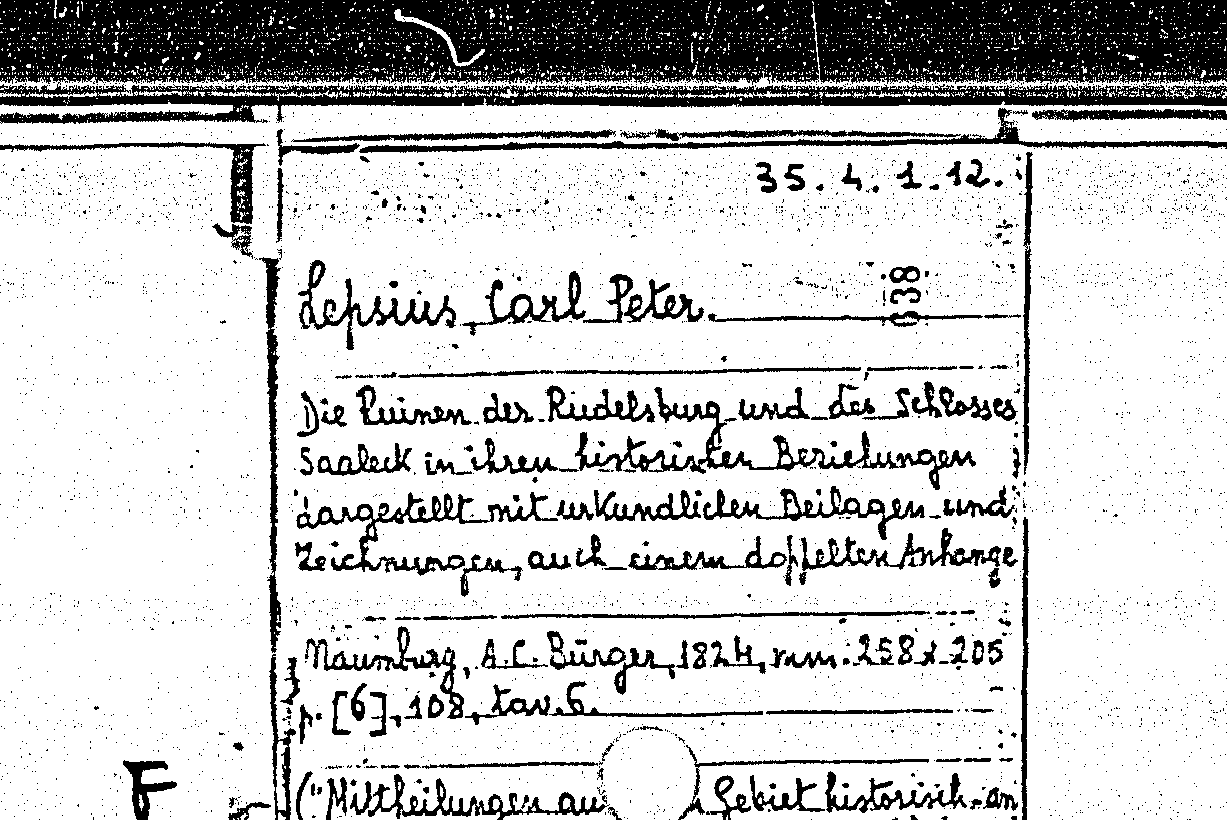 35. 4. 1. 12.
Lepsius, Carl Peter.
638
Die Ruinen der Rudelsburg und des Schlosses
Saaleck in ihren historischen Beziehungen
dargestellt mit urkundlichen Beilagen und
Zeichnungen, auch einem doppelten Anhange
Naumburg, A.C. Bürger, 1824, mm. 258 x 205
p. [6], 108, tav. 6.
F
("Mittheilungen au Gebiet historisch-an